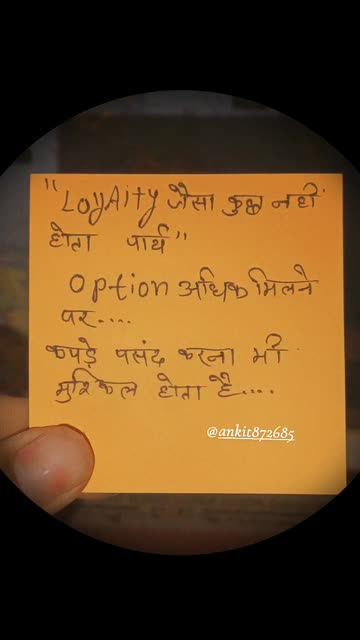 "LoyAity जैसा कुछ नहीं
होता पार्थ"
Option अधिक मिलने
पर....
कपड़े पसंद करना भी
मुश्किल होता है....
@ankit872685